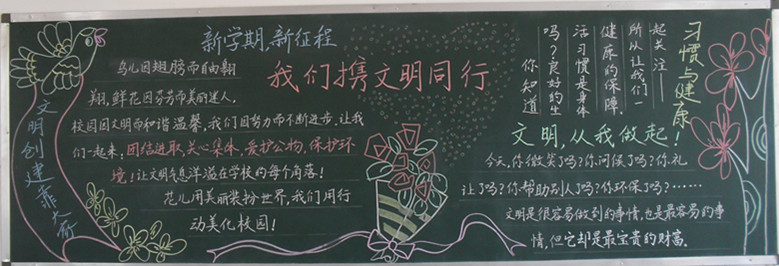 新学期,新征程
我们携文明同行
鸟儿因翅膀而自由翱
翔,鲜花因芬芳而美丽迷人。
校园因文明而和谐温馨,我们因努力而不断进步,让我
们一起来:团结进取,关心集体,爱护公物,保护环
境!让文明气息洋溢在学校的每个角落!
花儿用美丽装扮世界,我们用行
动美化校园!
文明创建靠大家
习惯与健康
你知道
吗?良好的生
活习惯是身体
健康的保障。
所以让我们一
起关注——
文明,从我做起!
今天,你微笑了吗?你问候了吗?你礼
让了吗?你帮助别人了吗?你环保了吗?……
文明是很容易做到的事情,也是最容易的事
情,但它却是最宝贵的财富。